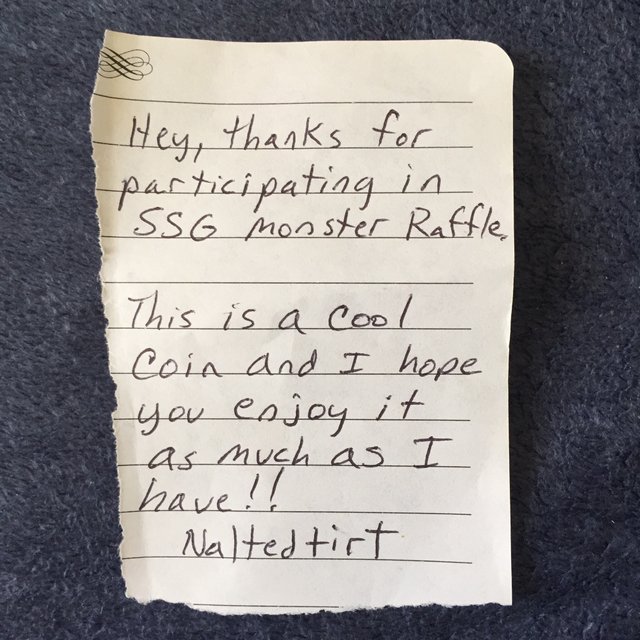 Hey, thanks for
participating in
SSG monster Raffle.
This is a cool
Coin and I hope
you enjoy it
as much as I
have!!
Naltedtirt